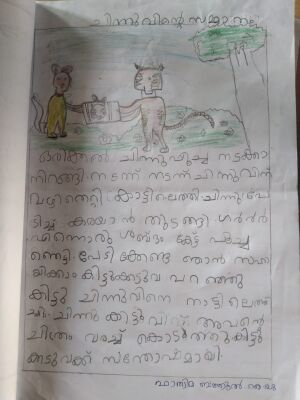 ചിന്നുവിന്റെ സമ്മാനം
ഒരിക്കൽ ചിന്നുപൂച്ച നടക്കാ
നിറങ്ങി നടന്ന് നടന്ന് ചിന്നുവിന്
വഴിതെറ്റി കാട്ടിലെത്തി ചിന്നു പേ
ടിച്ച് കരയാൻ തുടങ്ങി ഗർർർ
എന്നൊരു ശബ്ദം കേട്ട് പൂച്ച
ഞെട്ടി പേടിക്കേണ്ട ഞാൻ സഹാ
യിക്കാം കിട്ടുകടുവ പറഞ്ഞു
കിട്ടു ചിന്നുവിനെ നാട്ടിലെത്തി
ച്ചു ചിന്നു കിട്ടുവിന് അവന്റെ
ചിത്രം വരച്ച് കൊടുത്തു കിട്ടു
കടുവക്ക് സന്തോഷമായി
ഫാത്തിമ ബത്തൂൽ